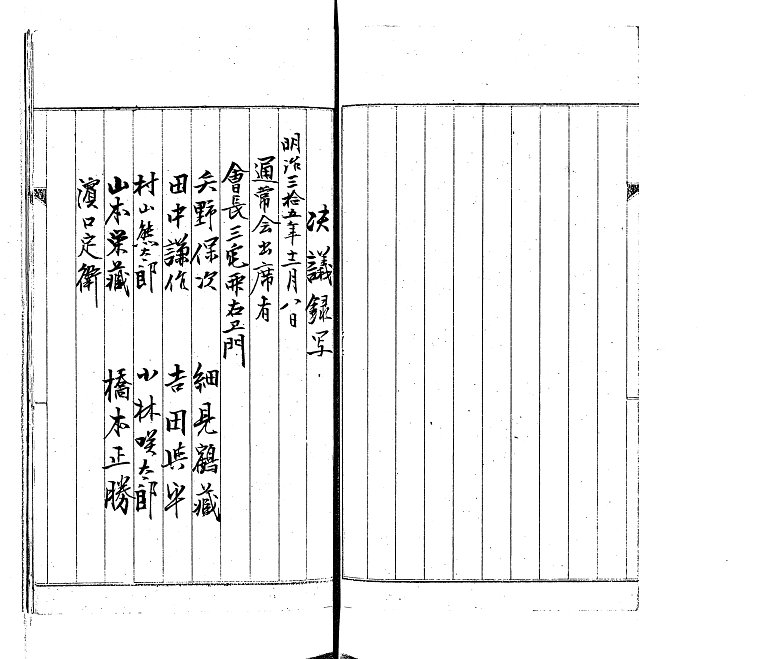 决議録写
明治三拾五年十二月八日
通常会出席者
會長三宅乖右卫門
矢野保次　細見鶴藏
田中謙作　吉田與平
村山熊太郎　小林咲太郎
山本栄藏　橋本正勝
濱口定衛